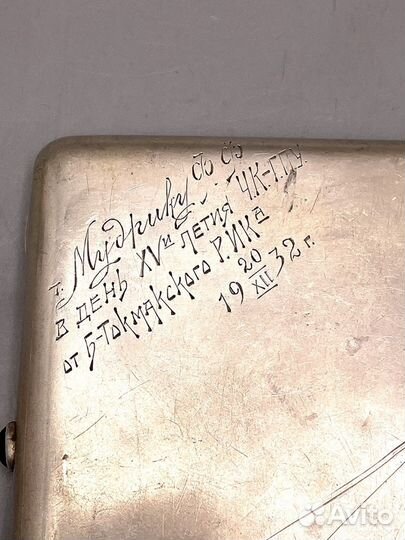 т. Мудрику Ф Ф
В ДЕНЬ XVи ЛЕТИЯ ЧК-ГПУ
от Б-Токмакского Р.ИКа
19 20/XII 32 г.
Avito